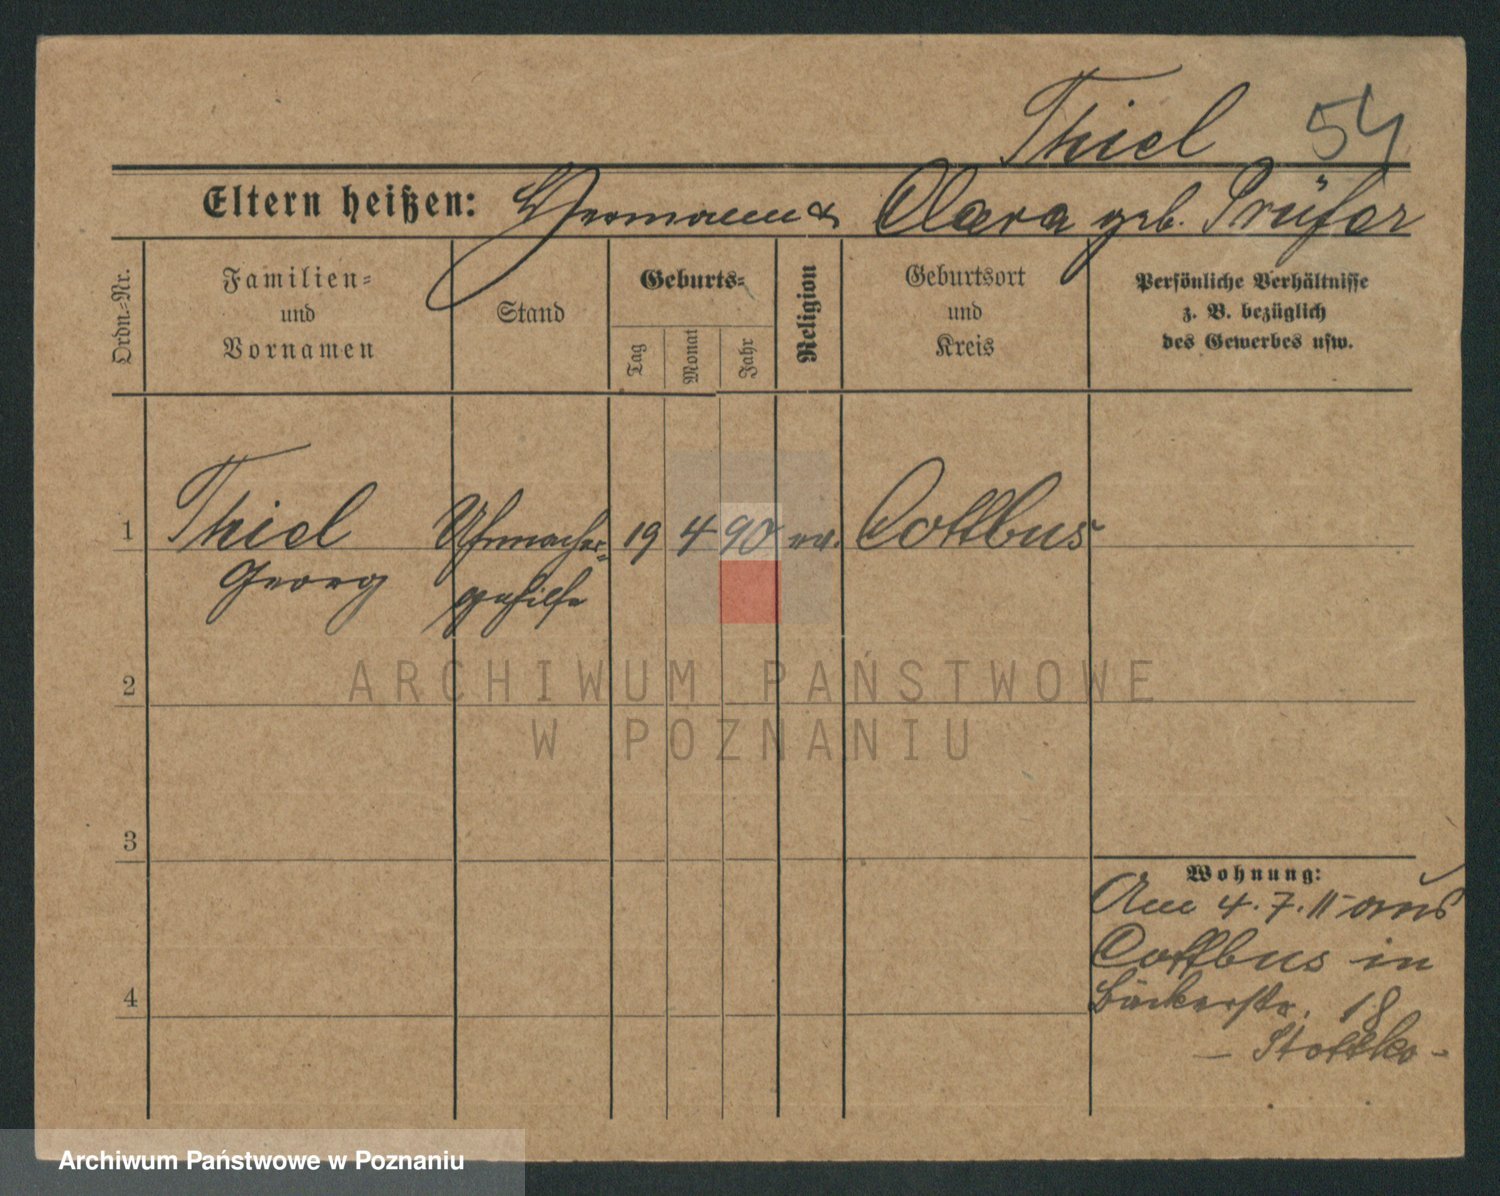 Thiel 54
Eltern heißen: Hermann & Clara geb. Prüfer
Ordn.-Nr.
Familien-
und
Vornamen
Stand
Geburts-
Tag
Monat
Jahr
Religion
Geburtsort
und
Kreis
Persönliche Verhältnisse
z. B. bezüglich
des Gewerbes usw.
1 Thiel Uhrmacher- 19 4 90 ev. Cottbus
Georg gehilfe
2
ARCHIWUM PAŃSTWOWE
W POZNANIU
3
Wohnung:
Am 4.7.11 aus
Cottbus in
4 Bäckerstr. 18
Archiwum Państwowe w Poznaniu